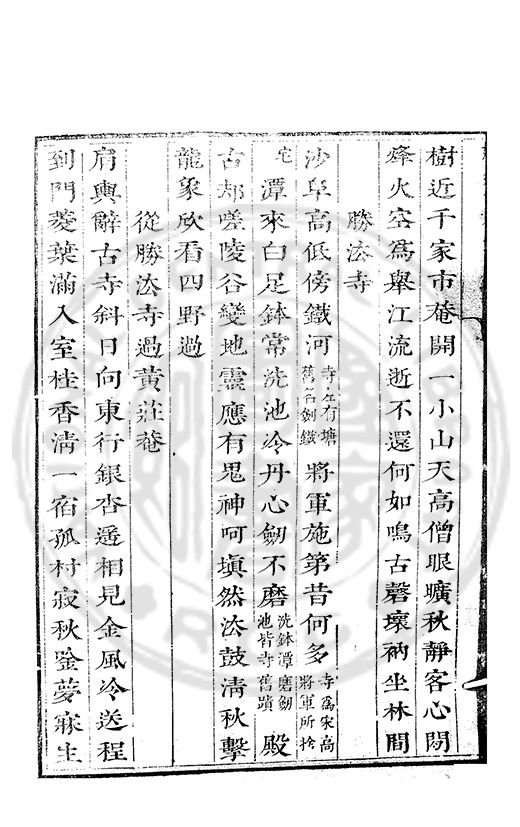 樹近千家市菴開一小山天高僧眼曠秋靜客心閒
烽火空爲舉江流逝不還何如鳴古磬壞衲坐林間
勝法寺
沙阜高低傍鐵河寺左有塘舊名劒鐵將軍施第昔何多寺爲宋高將軍所捨
宅潭來白足鉢常洗池冷丹心劒不磨洗鉢潭磨劒池皆寺舊蹟殿
古却嗟陵谷變地靈應有鬼神呵塡然法鼓清秋擊
龍象欣看四野過
從勝法寺過黃莊菴
肩輿辭古寺斜日向東行銀杏遥相見金風冷送程
到門菱葉滿入室桂香清一宿孤村寂秋唫夢寐生